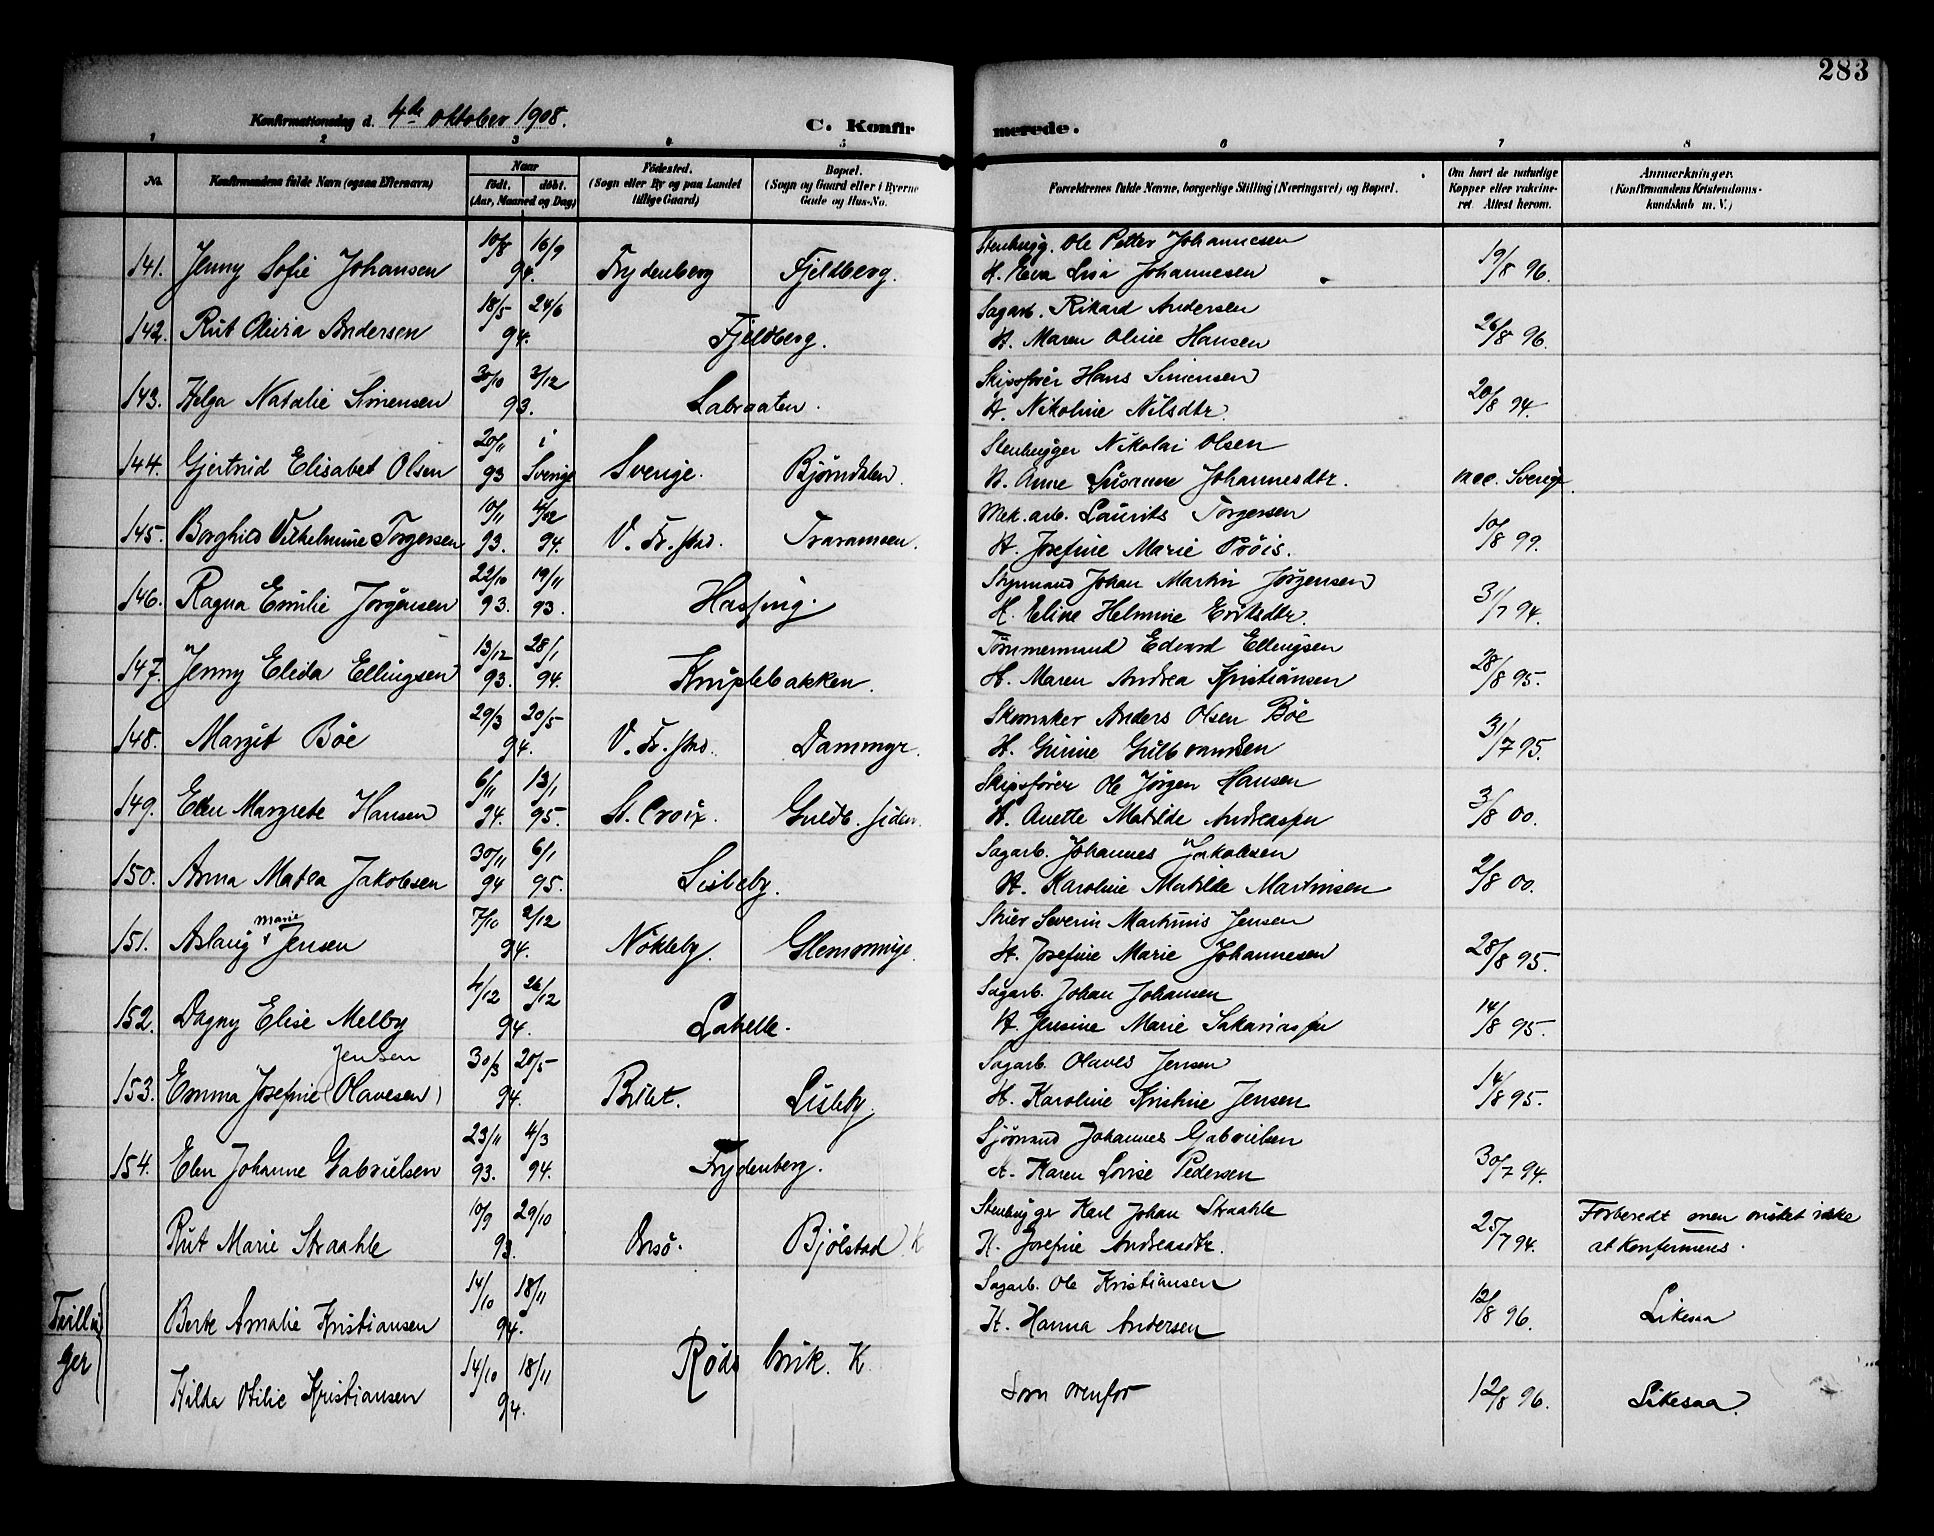 283
Konfirmationsdag d. 4de oktober 1908. C. Konfirmerede.
1 2 3 4 5 6 7 8
No. Konfirmandens fulde Navn (ogsaa Efternavn) Naar født. døbt. (Aar, Maaned og Dag) Fødested. (Sogn eller By og paa Landet tillige Gaard) Bopæl. (Sogn og Gaard eller i Byerne Gade og Hus-No. Forældrenes fulde Navne, borgerlige Stilling (Næringsvei) og Bopæl. Om havt de naturlige Kopper eller vakcineret. Attest herom. Anmærkninger. (Konfirmandens Kristendomskundskab m. V.)
141. Jenny Sofie Johansen 10/8 16/9 94. Frydenberg Fjeldberg. Stenhugg. Ole Petter Johannesen
H. Eva Lisa Johannesen 19/8 96.
142. Rut Olivia Andersen 18/5 24/6 94. Fjeldberg. Sagarb. Rikard Andersen
H. Maren Oline Hansen 26/8 96.
143. Helga Natalie Simensen 30/10 3/12 93. Labraaten. Skipsfører Hans Simensen
H. Nikoline Nilsdtr. 20/8 94.
144. Gjertrud Elisabet Olsen 20/11 93 i Sverige Sverige. Bjørndalen. Stenhugger Nikolai Olsen
H. Anne Susanne Johannesdtr. vacc. Sverige.
145. Borghild Vilhelmine Torgersen 10/11 93. 4/02 94. V. Fr.stad. Traramoen. Mek. arb. Laurits Torgersen
H. Josefine Marie Prøis. 10/8 99.
146. Ragna Emilie Jørgensen 22/10 93. 19/11 93. Hassing. Styrmand Johan Martin Jørgensen
H. Eline Helmine Eriksdtr. 31/7 94.
147. Jenny Elida Ellingsen 13/12 93. 28/1 94. Kniplebakken. Tømmermand Edvard Ellingsen
H. Maren Andrea Kristiansen 28/8 95.
148. Margit Bøe 29/3 20/5 94. V. Fr.stad. Dammyr. Skomaker Anders Olsen Bøe
H. Gurine Gulbrandsen 31/7 95.
149. Elen Margrete Hansen 6/11 94. 13/1 95. St. Croix. Guldb. siden. Skipsfører Ole Jørgen Hansen
H. Anette Matilde Andreassen 3/8 00.
150. Anna Matea Jakobsen 30/11 94 6/1 95. Lisleby. Sagarb. Johannes Jakobsen
H. Karoline Matilde Martinsen 2/8 00.
151. Aslaug Marie Jensen 7/10 2/12 94. Nøkleby. Glemminge. Stuer Severin Martinius Jensen
H. Josefine Marie Johannesen 28/8 95.
152. Dagny Elise Melby 4/12 26/12 94. Labelle. Sagarb. Johan Johansen
H. Jensine Marie Sakariassen 14/8 95.
Jensen
153. Emma Josefine (Olavesen) 30/3 20/5 94. Lisleby. Sagarb. Olaves Jensen
H. Karoline Kristine Jensen 14/8 95.
154. Elen Johanne Gabrielsen 23/11 93. 4/3 94. Frydenberg. Sjømand Johannes Gabrielsen
H. Karen Lovise Pedersen 30/7 94.
Rut Marie Straahle 10/9 29/10 93. Onsø. Bjølstad K Stenhugger Karl Johan Straahle
H. Josefine Andreasdtr. 25/7 94. Forberedt men ønsket ikke
at konfirmeres.
Tvillinger
Berte Amalie Kristiansen 14/10 18/11 94. Røds brik. K Sagarb. Ole Kristiansen
H. Hanna Andersen 12/8 96. Likesaa
Hilda Otilie Kristiansen 14/10 18/11 94. Som ovenfor 12/8 96. Likesaa.